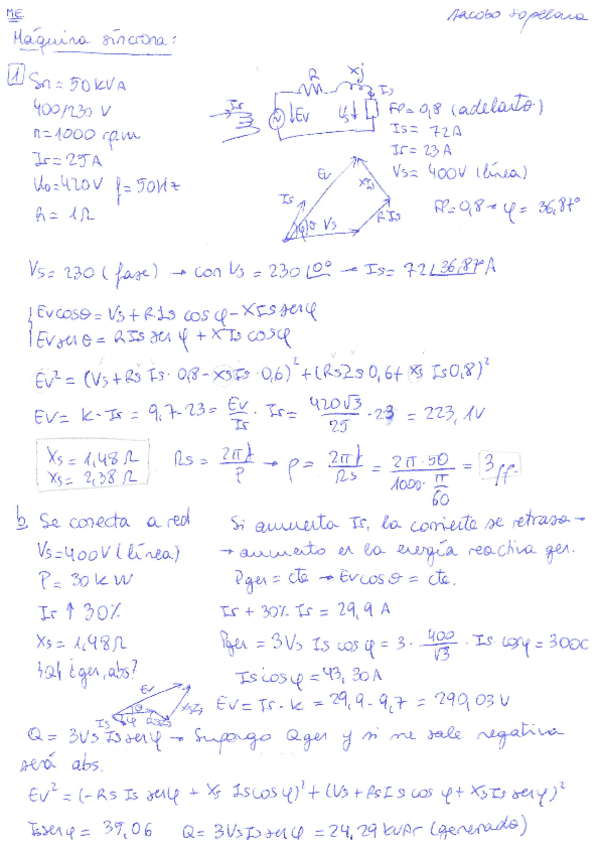 ME
Máquina síncrona:
1 Sn = 50 kVA
400/230 V
n = 1000 rpm
Ir = 25A
Uo = 420V f = 50Hz
R = 1Ω
R Xj Is
Ir Ev Us
FP = 0,8 (adelanto)
Is = 72A
Ir = 23A
Vs = 400V (línea)
FP = 0,8 → φ = 36,87º
Ev XIs Is φ θ Vs RIs
Vs = 230 (fase) → con Vs = 230 ∠0º → Is = 72 ∠36,87º A
Ev cosθ = Vs + RIs cos φ - XIs sen φ
Ev sen θ = RIs sen φ + XIs cos φ
Ev² = (Vs + Rs Is · 0,8 - Xs Is · 0,6)² + (Rs Is 0,6 + Xs Is 0,8)²
Ev = k · Is = 9,7 · 23 = Ev/Is · Is = 420√3/25 · 23 = 223,1V
Xs = 1,48 Ω
Xs = 2,38 Ω
Rs = 2πf/P → P = 2πf/Rs = 2π·50/1000·π/60 = 3 pp.
b Se conecta a red
Vs = 400V (línea)
P = 30 kW
Ir ↑ 30%
Xs = 1,48Ω
¿Q? ¿ger, abs?
Si aumenta Is, la corriente se retrasa →
→ aumento en la energía reactiva ger.
Pger = cte → Ev cos θ = cte.
Ir + 30% Is = 29,9 A
Pger = 3Vs Is cos φ = 3 · 400/√3 · Is cos φ = 3000
Is cos φ = 43,30A
Ev = Is · k = 29,9 - 9,7 = 290,03V
Ev Is θ φ XsIs
Q = 3Vs Is sen φ → Supongo Qger y si me sale negativa
será abs.
Ev² = (-Rs Is sen φ + Xs Is cos φ)² + (Vs + Rs Is cos φ + Xs Is sen φ)²
Is sen φ = 35,06 Q = 3Vs Is sen φ = 24,29 kVAr (generado)